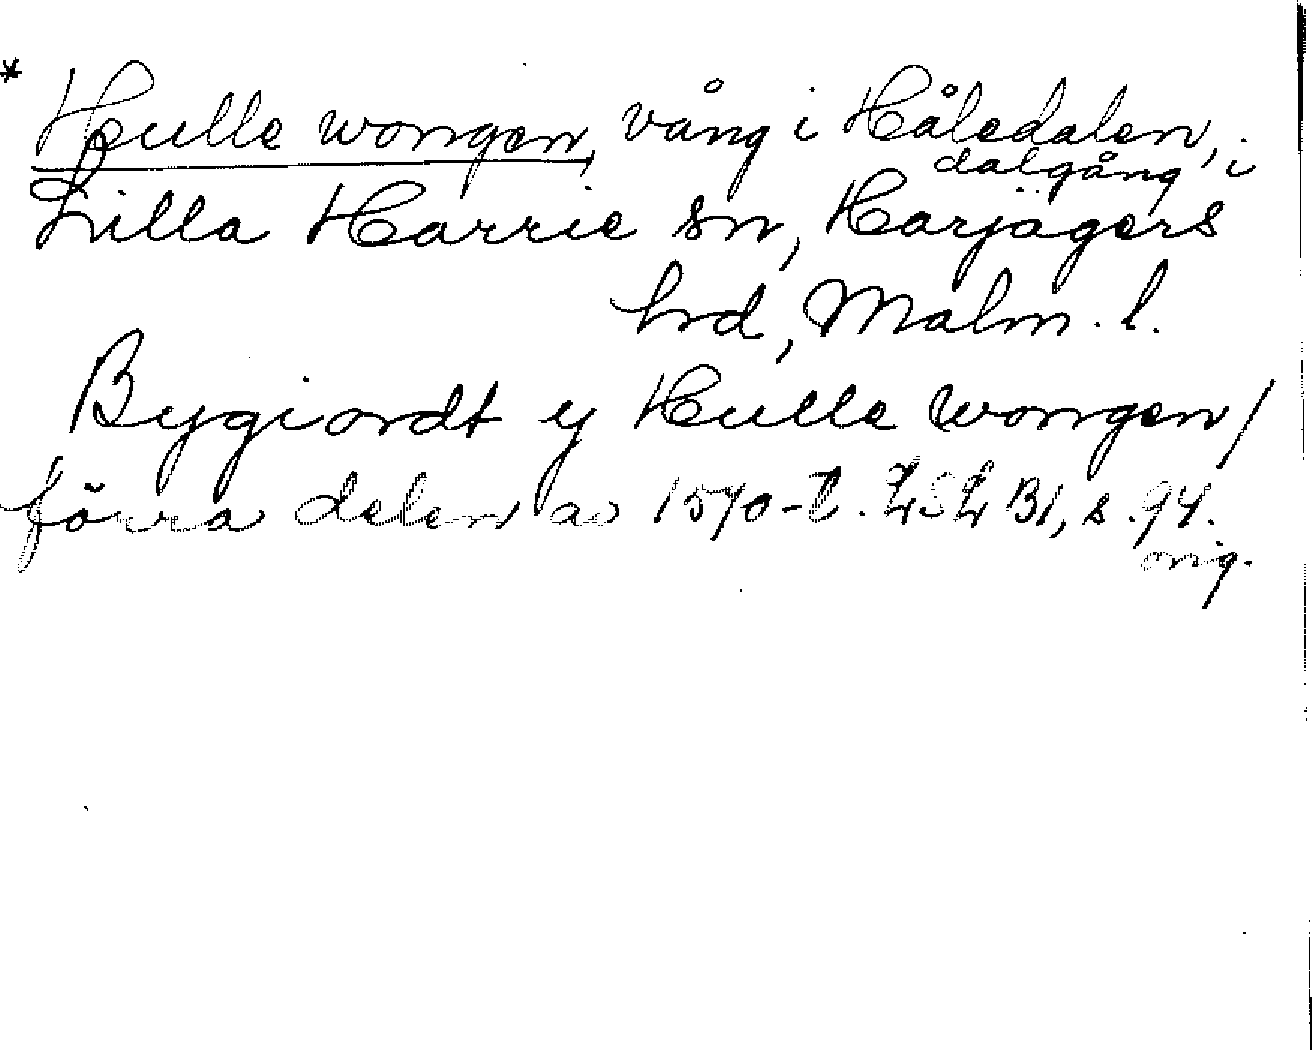 * Hulle wongen, vång i Håledalen,
dalgång i
Lilla Harrie sn, Harjagers
hrd, Malm. l.
Bygiordt y Hulle wongen/
förra delen av 1570-t. LSL B1, s. 94.
orig.